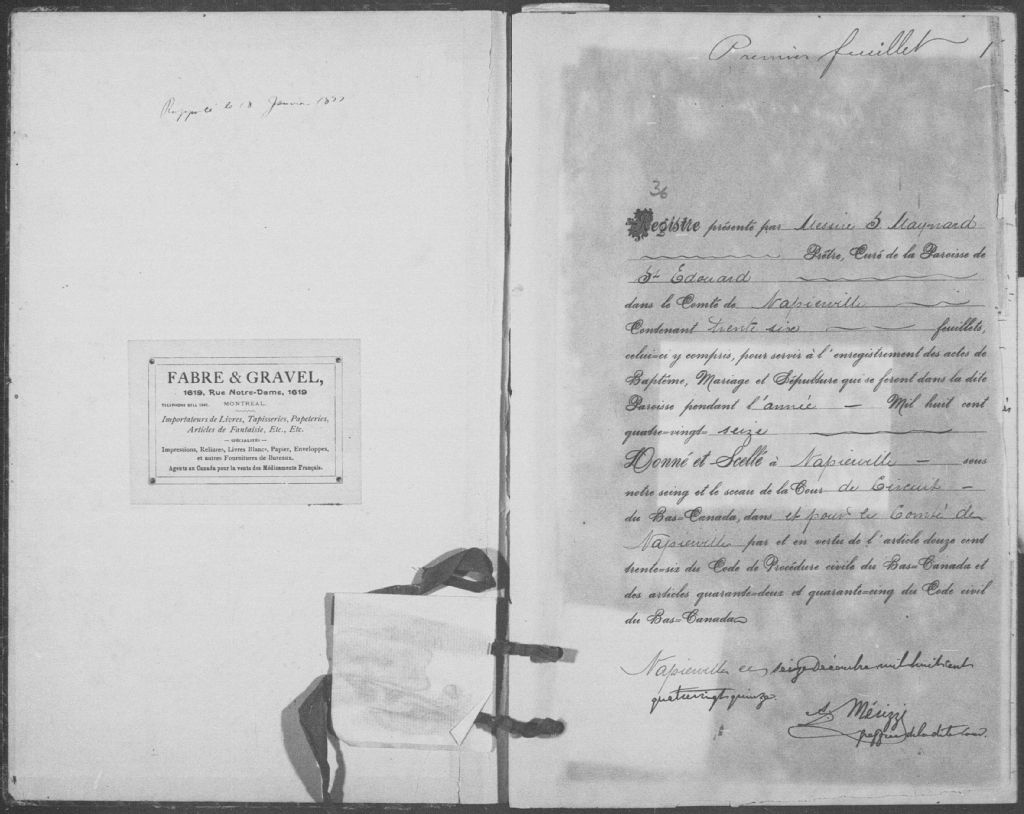 Rapporté le 18 Janvier
FABRE & GRAVEL,
1619, Rue Notre-Dame, 1619
MONTREAL.
Importateurs de Livres, Tapisseries, Papeteries,
Articles de Fantaisie, Etc., Etc.
— SPÉCIALITÉS —
Impressions, Reliures, Livres Blancs, Papier, Enveloppes,
et autres Fournitures de Bureaux.
Agents au Canada pour la vente des Médicaments Français.
Premier feuillet 1
36
Registre présenté par Messire S Maynard
Prêtre, Curé de la Paroisse de
St Edouard
dans le Comté de Napierville
Contenant trente six feuillets,
celui=ci y compris, pour servir à l'enregistrement des actes de
Baptême, Mariage et Sépulture qui se feront dans la dite
Paroisse pendant l'année — Mil huit cent
quatre=vingt= seize
Donné et Scellé à Napierville — sous
notre seing et le sceau de la Cour de Circuit —
du Bas=Canada, dans et pour le Comté de
Napierville par et en vertu de l'article douze cent
trente=six du Code de Procédure civile du Bas=Canada et
des articles quarante=deux et quarante=cinq du Code civil
du Bas=Canada
Napierville ce seize Décembre mil huit cent
quatrevingt quinze.
greffier de la dite Cour.